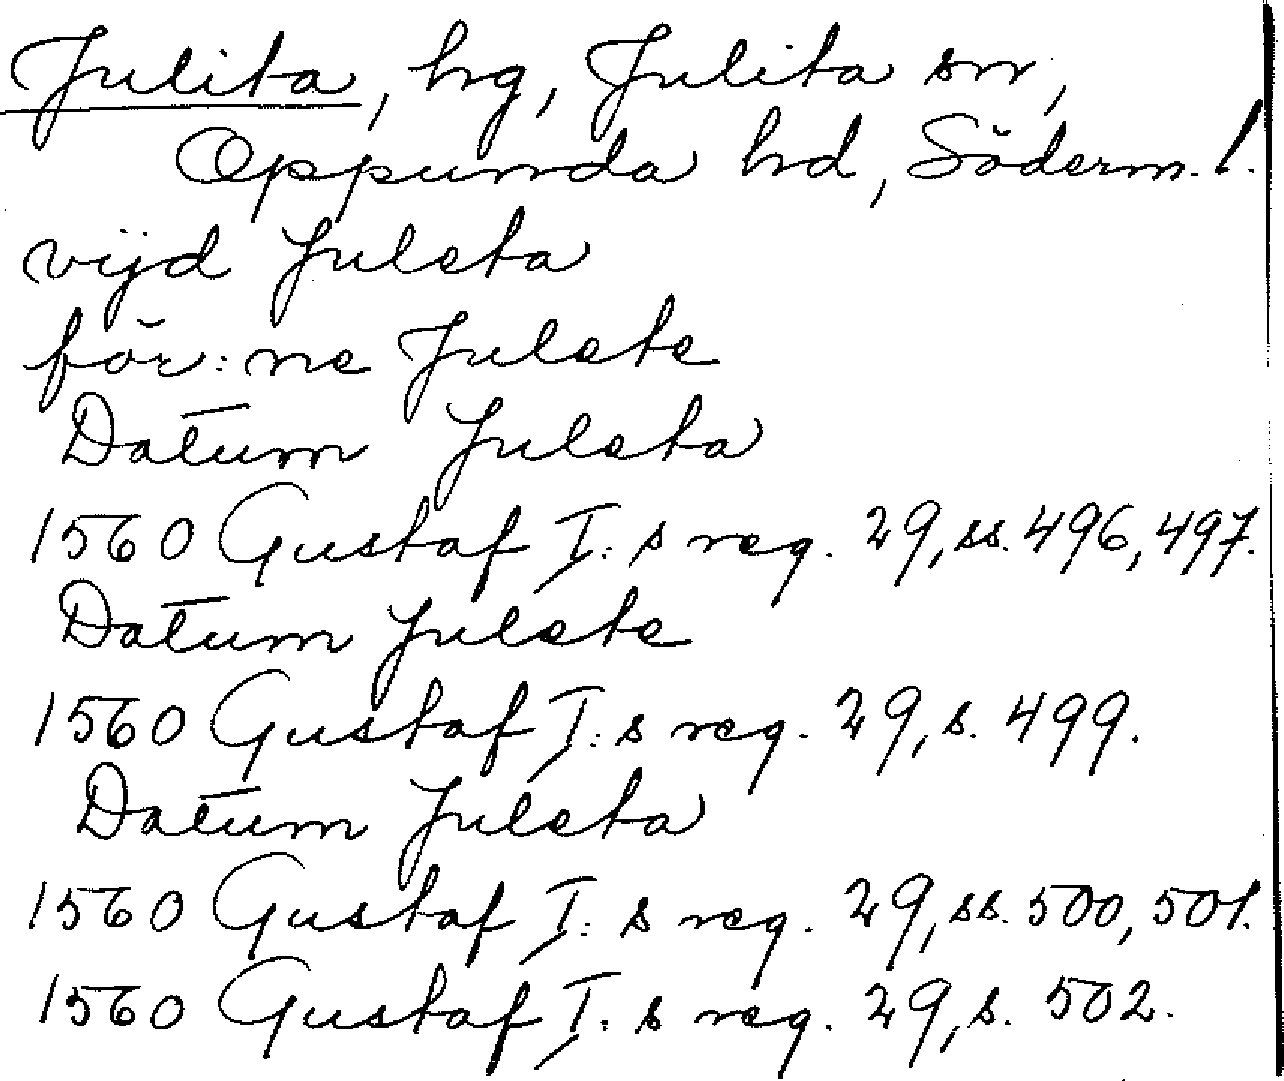 Julita, hg, Julita sn,
Oppunda hd, Söderm. l.
vijd Juleta
för:ne Julete
Datum Juleta
1560 Gustaf I:s reg. 29, ss. 496, 497.
Datum Julete
1560 Gustaf I:s reg. 29, s. 499.
Datum Juleta
1560 Gustaf I:s reg. 29, ss. 500, 501.
1560 Gustaf I:s reg. 29, s. 502.